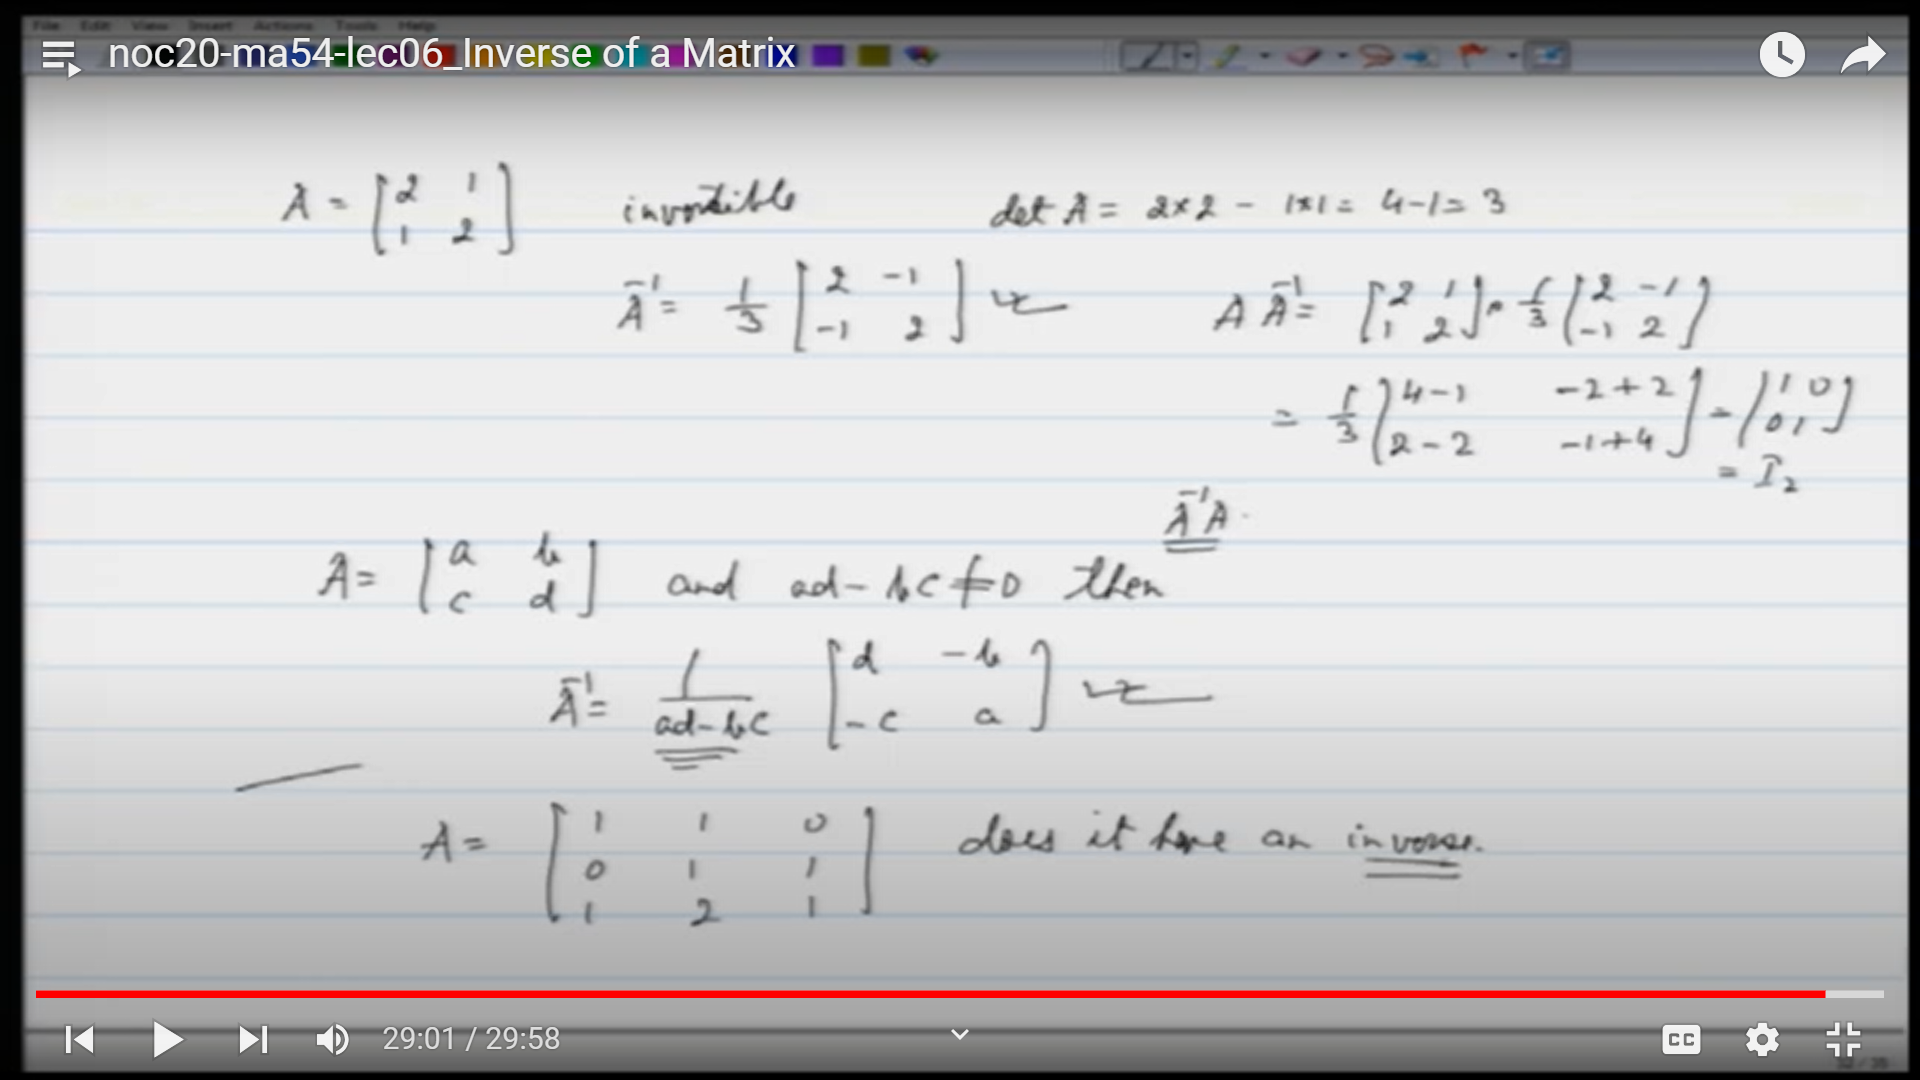 File Edit View Insert Actions Tools Help
noc20-ma54-lec06_Inverse of a Matrix
A = [2 1; 1 2] invertible det A = 2×2 - 1×1 = 4-1 = 3
A⁻¹ = 1/3 [2 -1; -1 2] A A⁻¹ = [2 1; 1 2] · 1/3 [2 -1; -1 2]
= 1/3 [4-1 -2+2; 2-2 -1+4] = [1 0; 0 1]
= I₂
A⁻¹A
A = [a b; c d] and ad-bc≠0 then
A⁻¹ = 1/(ad-bc) [d -b; -c a]
A = [1 1 0; 0 1 1; 1 2 1] does it have an inverse.
29:01 / 29:58
CC